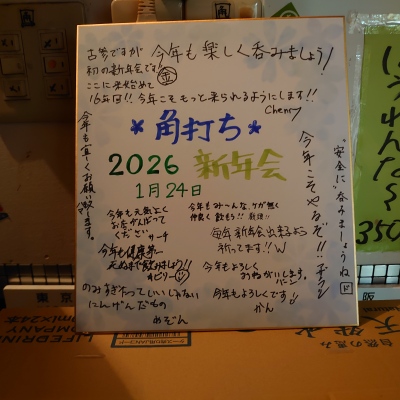 古参ですが
初の新年会です!
ここに来始めて
16年目!!今年こそもっと来られるようにします!!
Cherry
今年も楽しく呑みましょう!
金
今年も宜しくお願い致します。
*角打ち*
2026 新年会
1月24日
"安全に"呑みましょうね
今年こそやるぞ!!
今年も元気よく
お店がんばって
ください サーチ
今年もみ〜んな、ケガ無く
仲良く飲もう!!
毎年新年会出来るよう
祈ってます!!W
今年も健康第一
今年もよろしく
おねがいします。
今年もよろしくです!
かん
のみすぎたっていいじゃない
にんげんだもの
めぞん
350
東京
LIFEDRINK
COMPANY
0mlx24本
自然の恵み
天然水